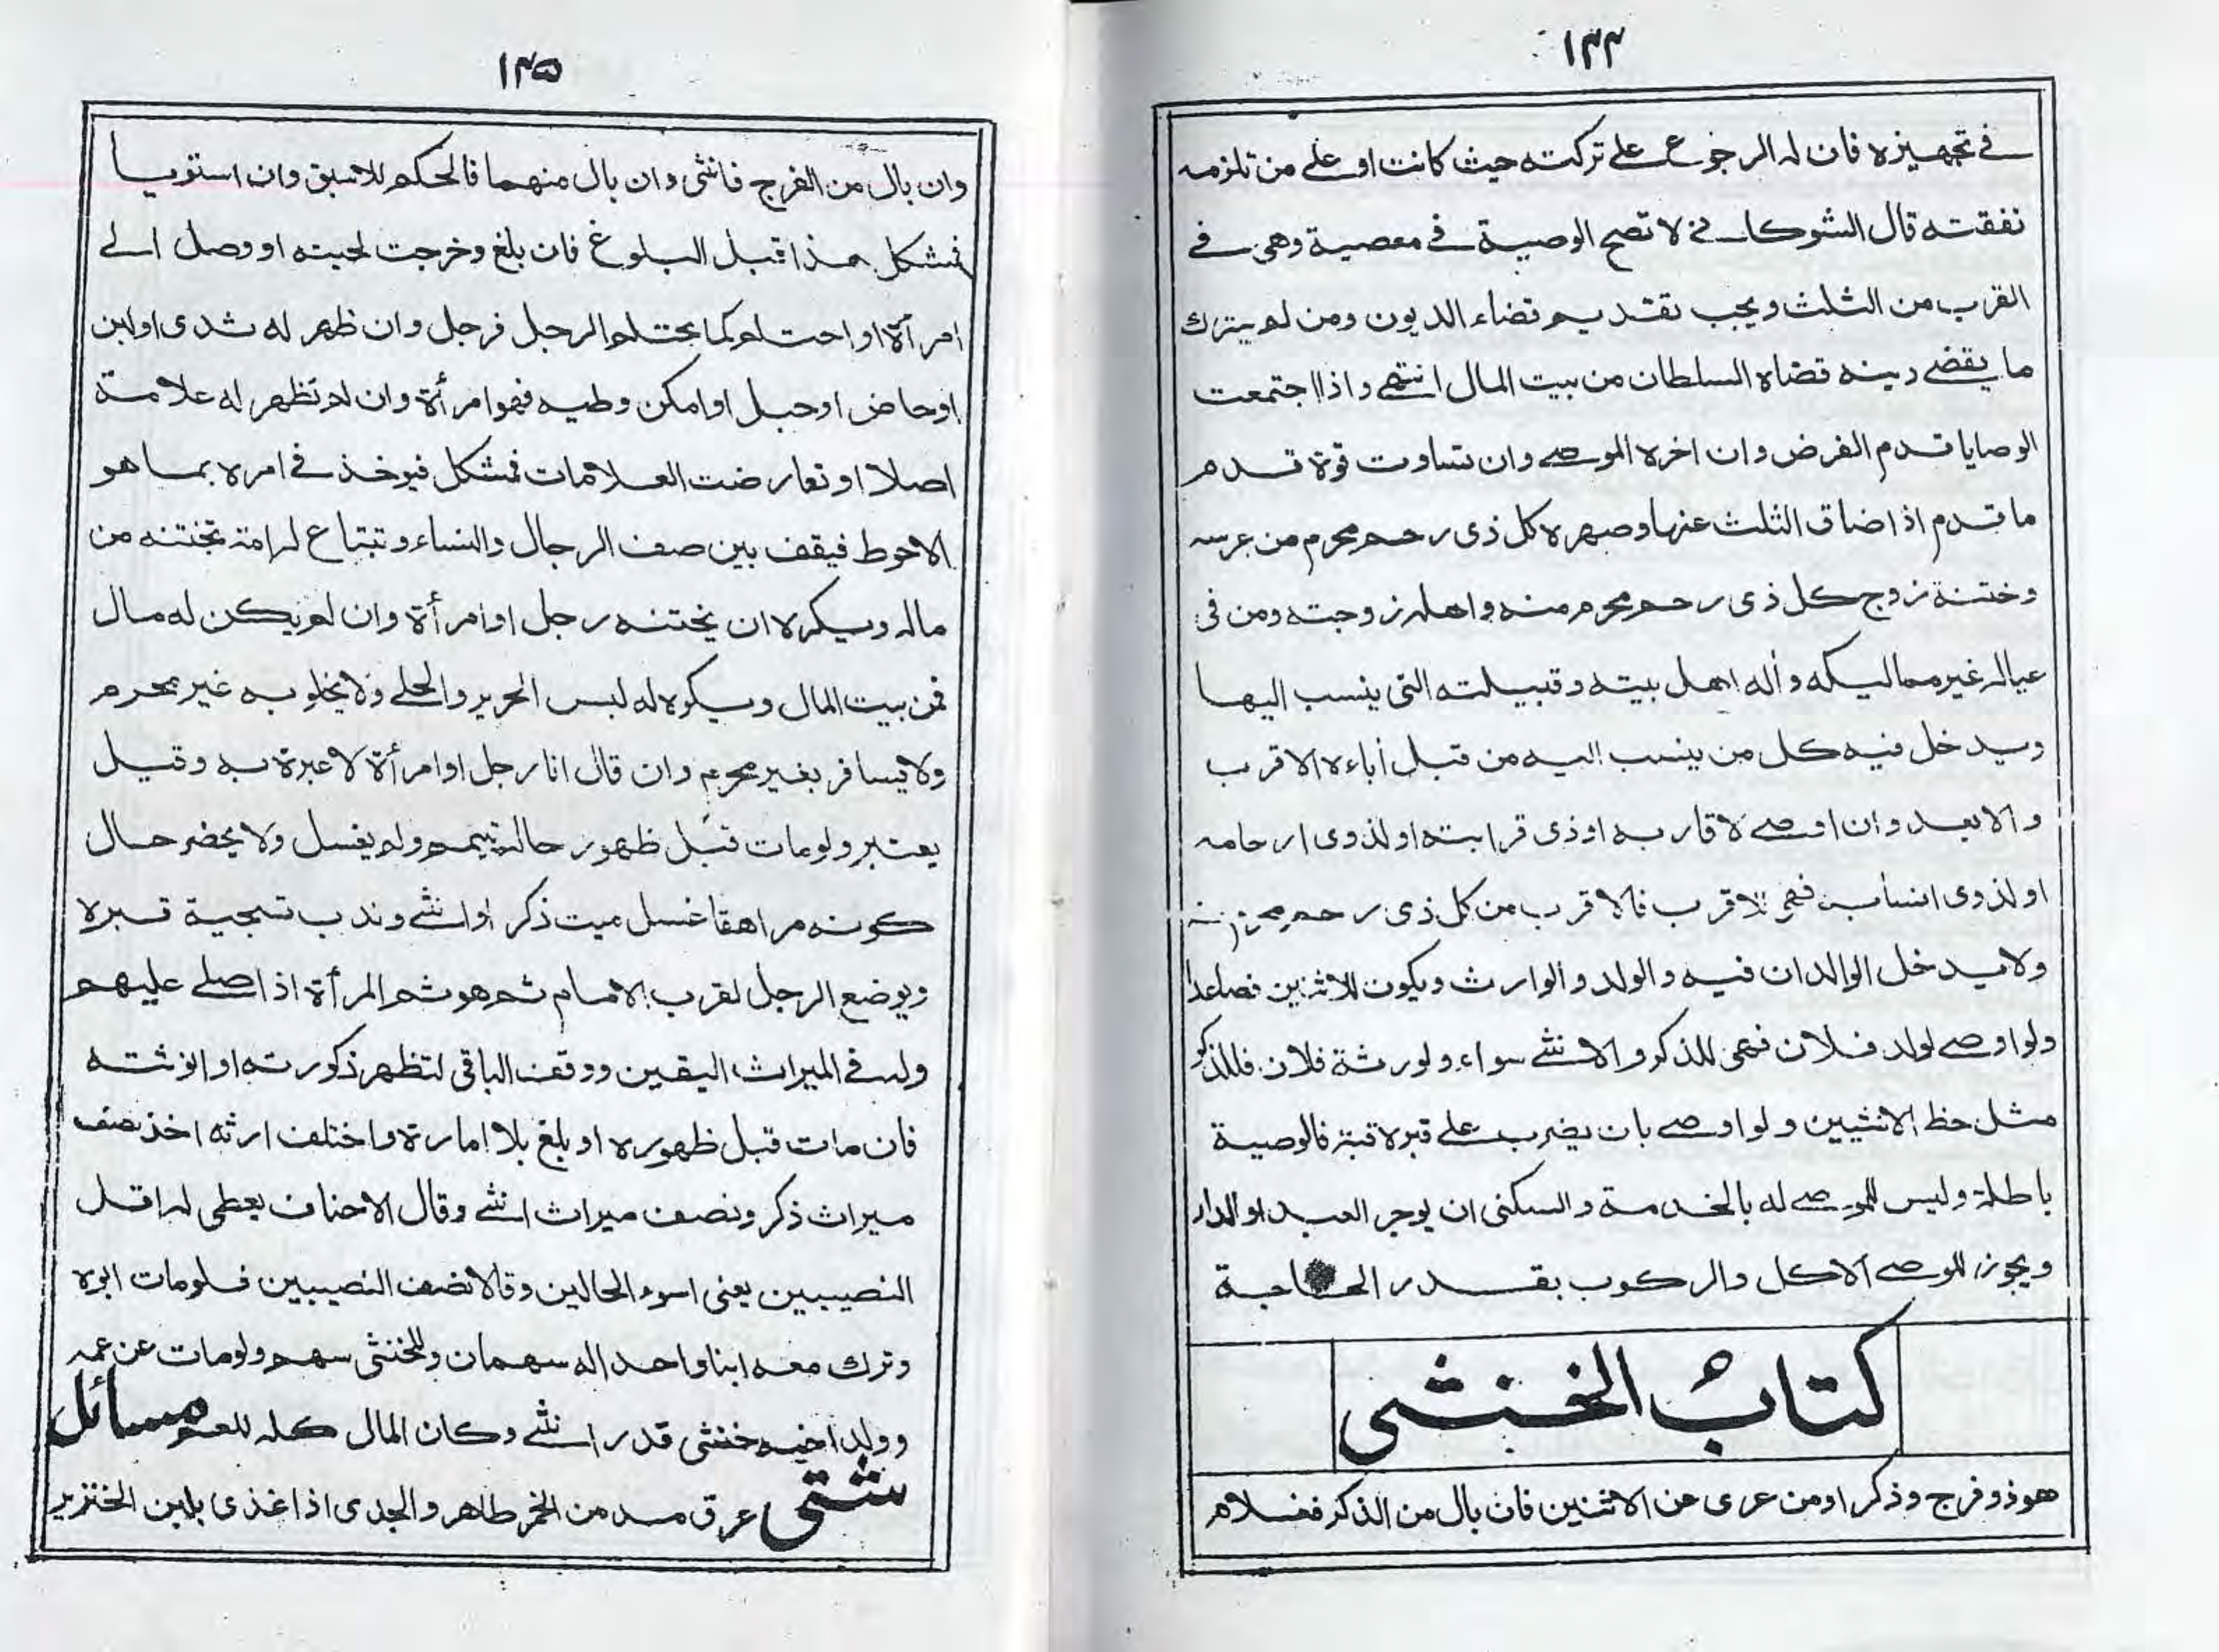 ١٣٤
في تجهيزه فان له الرجوع على تركته حيث كانت او على من تلزمه
نفقته قال الشوكاني لا تصح الوصية في معصية وهي في
القرب من الثلث ويجب تقديم قضاء الديون ومن لم يترك
ما يقضي دينه قضاه السلطان من بيت المال انتهى واذا اجتمعت
الوصايا قدم الفرض وان اخره الموصي وان تساوت قوة قدم
ما قدم اذا ضاق الثلث عنها وصهره كل ذي رحم محرم من عرسه
وختنه زوج كل ذي رحم محرم منه واهله زوجته ومن في
عياله غير مماليكه وأله اهل بيته وقبيلته التي ينسب اليها
ويدخل فيه كل من ينسب اليه من قبل أباءه الاقرب
والابعد وان اوصى لاقاربه او ذي قرابته او لذوي ارحامه
او لذوي انسابه فهي للاقرب فالاقرب من كل ذي رحم محرم منه
ولا يدخل الوالدان فيه والولد والوارث ويكون للاثنين فصاعدا
ولو اوصى لولد فلان فهي للذكر والانثى سواء ولورثة فلان فللذكر
مثل حظ الانثيين ولو اوصى بان يضرب على قبره قبة فالوصية
باطلة وليس للموصى له بالخدمة والسكنى ان يوجر العبد او الدار
ويجوز للوصي الاكل والركوب بقدر الحاجة
كتاب الخنثى
هو ذو فرج وذكر او من عرى عن الاثنين فان بال من الذكر فغلام
١٣٥
وان بال من الفرج فانثى وان بال منهما فالحكم للاسبق وان استويا
فمشكل هذا قبل البلوغ فان بلغ وخرجت لحيته او وصل الى
امرأة او احتلم كما يحتلم الرجل فرجل وان ظهر له ثدي او لبن
او حاض او حبل او امكن وطيه فهو امرأة وان لم تظهر له علامة
اصلا او تعارضت العلامات فمشكل فيوخذ في امره بما هو
الاحوط فيقف بين صف الرجال والنساء وتبتاع له امة تختنه من
ماله ويكره ان يختنه رجل او امرأة وان لم يكن له مال
فمن بيت المال ويكره له لبس الحرير والحلي ولا يخلو به غير محرم
ولا يسافر بغير محرم وان قال انا رجل او امرأة لا عبرة به وقيل
يعتبر ولو مات قبل ظهور حاله تيمم ولم يغسل ولا يحضر حال
كونه مراهقا غسل ميت ذكر او انثى وندب تسجية قبره
ويوضع الرجل لقرب الامام ثم هو ثم المرأة اذا صلى عليهم
وله في الميراث اليقين ووقف الباقي لتظهر ذكورته او انوثته
فان مات قبل ظهوره او بلغ بلا امارة واختلف ارثه اخذ نصف
ميراث ذكر ونصف ميراث انثى وقال الاحناف يعطى له اقل
النصيبين يعني اسوء الحالين وقالا نصف النصيبين فلو مات ابوه
وترك معه ابنا واحدا له سهمان وللخنثى سهم ولو مات عن عمه
وولد اخيه خنثى قدر انثى وكان المال كله للعم مسائل
شتى عرق مدمن الخمر طاهر والجدي اذا غذي بلبن الخنزير